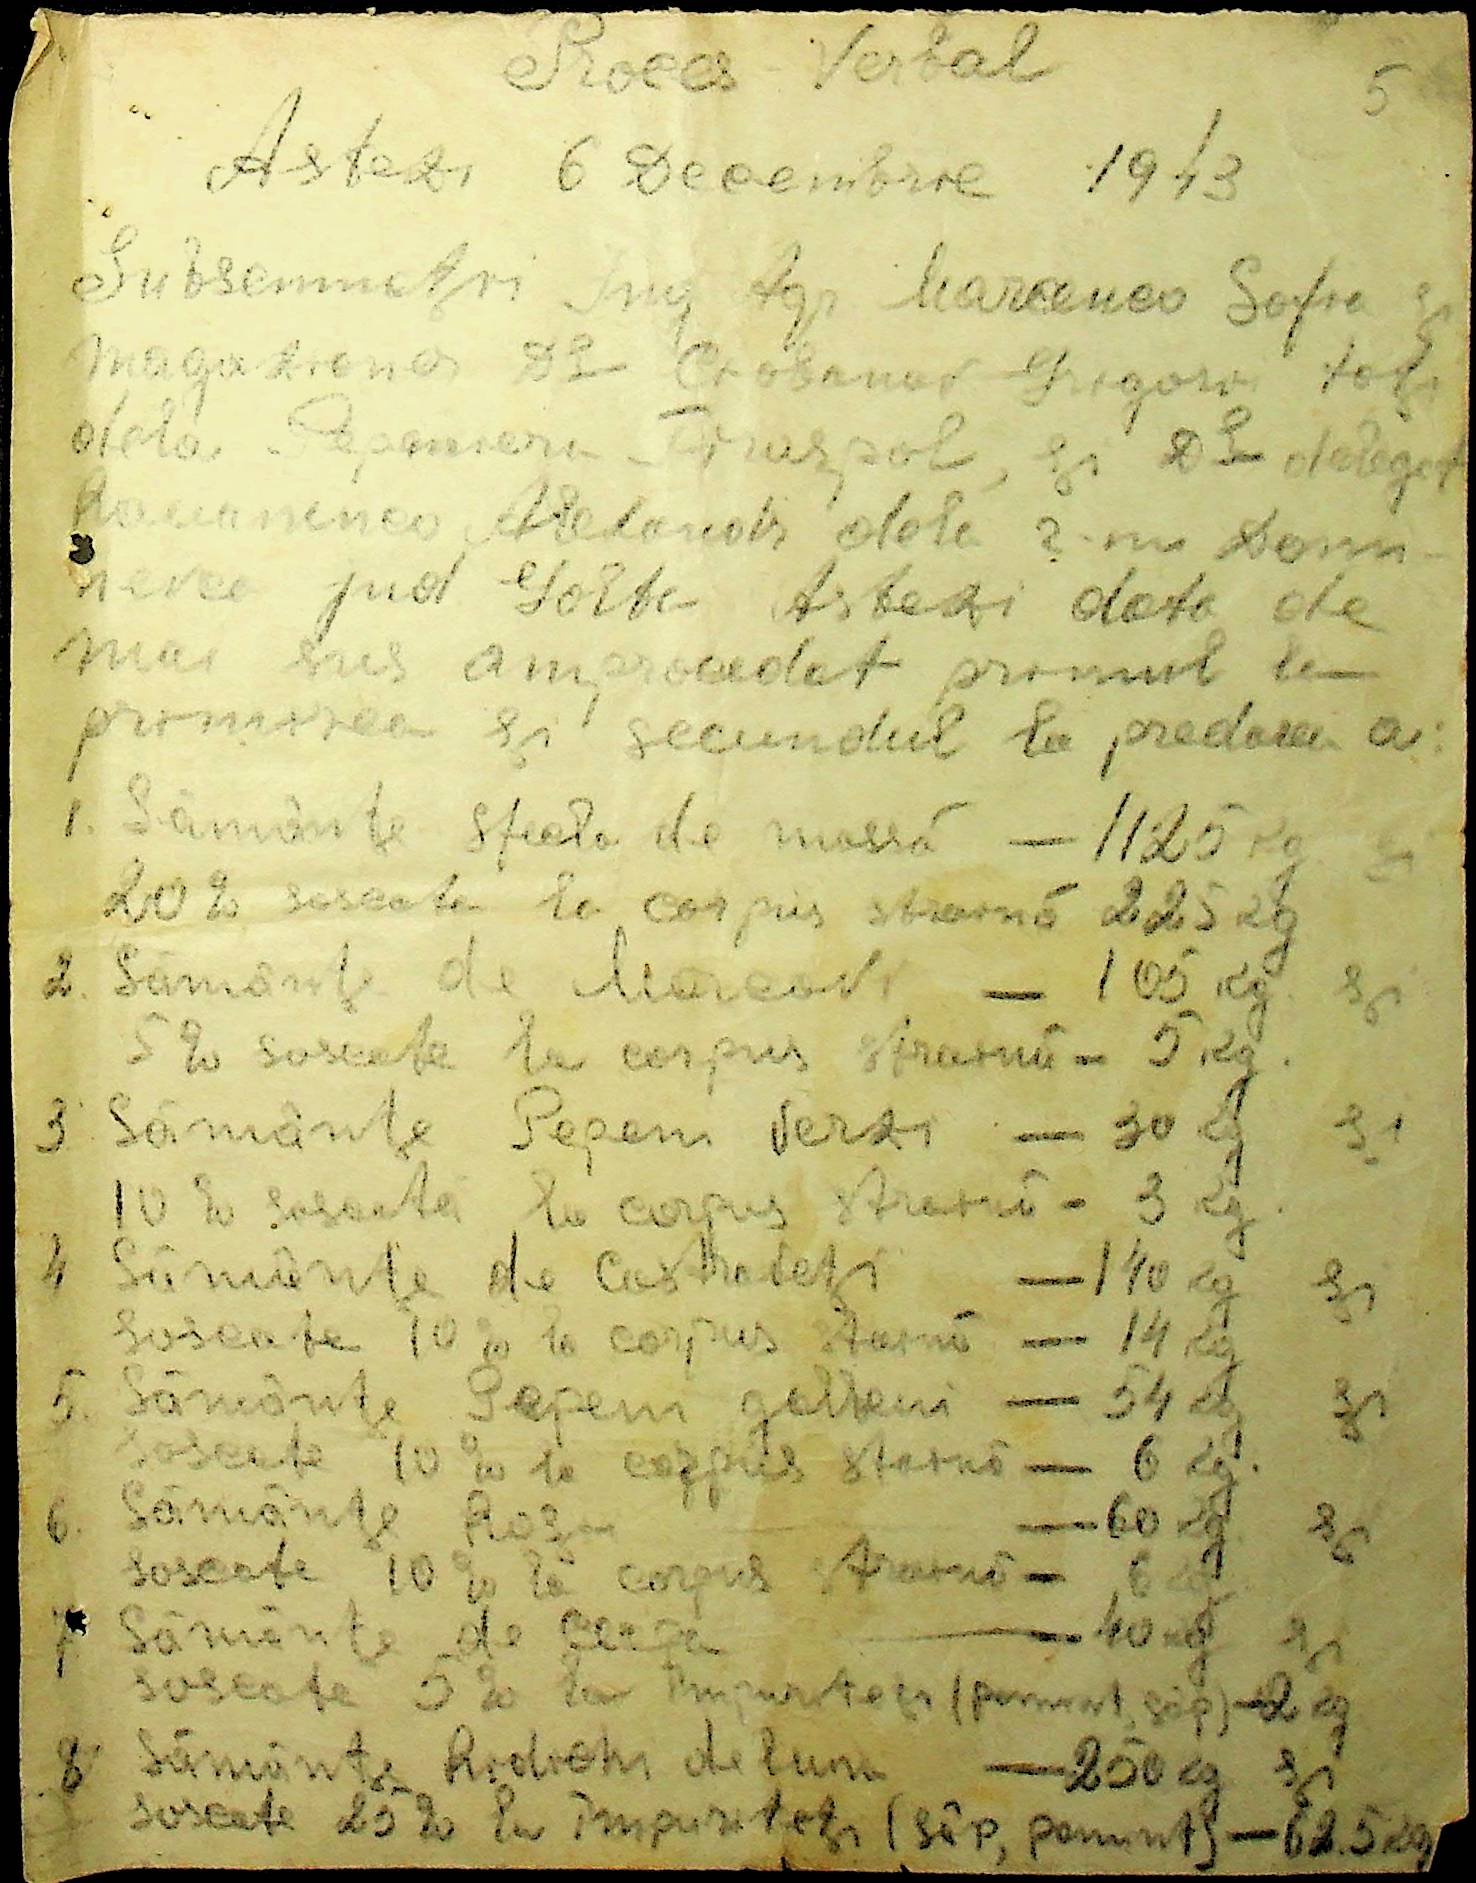 Proces Verbal
5
Astezi 6 Decembrie 1943
Subsemnatzi Ing Agr Marcenco Sofia și
magazioner Dl Ciobanar Grigori toți
dela Pepeniera Tiraspol, și Dl delegat
dela domi-
nevca jud Golta Astezi data de
mai sus amprocedat primul la
primirea și secundul la predarea a:
1. Sămânțe sfecla de massă — 1125 kg și
20% soscata la corpus straină 225 kg
2. Sămânțe de Morcovi — 105 kg. și
5% soscate la corpus straină - 5 kg.
3 Sămânțe Pepeni Verzi — 30 kg și
10% soscată la corpus straină - 3 kg.
4 Sămânțe de Castraveți — 140 kg și
soscate 10% la corpus staină — 14 kg
5. Sămânțe Pepeni galbeni — 54 kg și
soscate 10% la corpus staină — 6 kg.
6. Sămânțe Roși — 60 kg și
soscate 10% la corpus straină — 6 kg
7 Sămânțe de Ceapa — 40 kg și
soscate 5% la impuritați (pamint, sîp) — 2 kg
8 Sămânțe Ridichi de luna — 250 kg și
soscate 25% la impuritați (sîp, pamint) — 62.5 kg